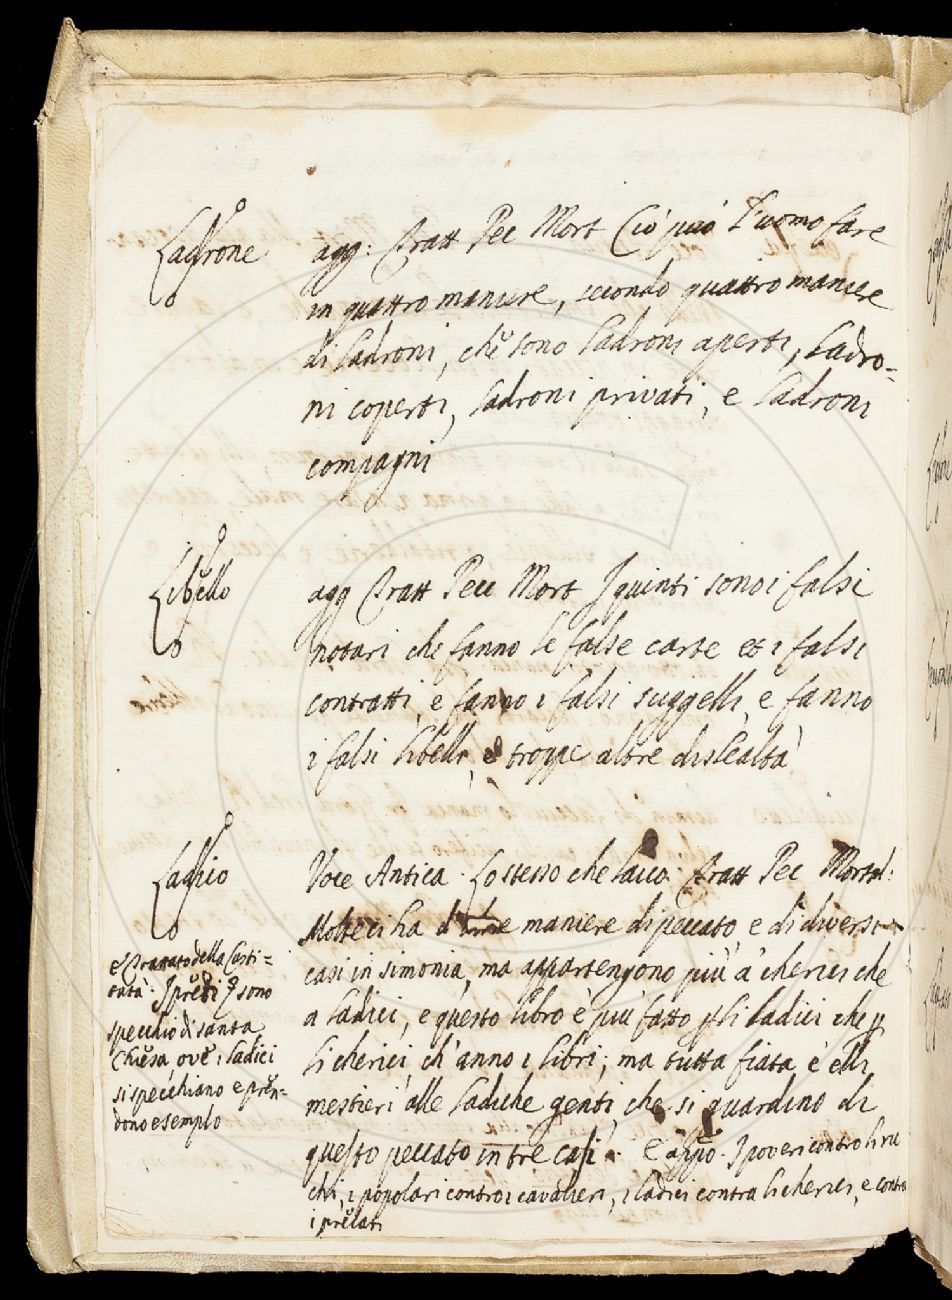 Ladrone
agg: Tratt Pec Mort Ciò può l'uomo fare
in quattro maniere, secondo quattro maniere
di ladroni, che sono ladroni aperti, ladro=
ni coperti, ladroni privati, e ladroni
compagni
Libello
agg Tratt Pecc Mort I quinti sono i falsi
notari che fanno le false carte et i falsi
contratti, e fanno i falsi suggelli, e fanno
i falsi libelli, e troppe altre dislealtà
Ladico
Voce Antica. Lo stesso che laico. Tratt Pec Mortal:
Molte ci ha d' maniere di peccato, e di diversi
casi in simonia, ma appartengono più a' cherici che
a ladici, e questo libro è più fatto li ladici che
li cherici, ch'anno i libri; ma tutta fiata è elli
mestieri alle ladiche genti, che si guardino di
questo peccato in tre casi. E appo. I poveri contro li ric
chi, i popolari contro i cavalieri, i ladici contra li cherici, e contro
i prelati
E Trattato della Casti=
tata: I preti sono
specchio di santa
Chiesa, ove i ladici
si specchiano e pren=
dono esemplo